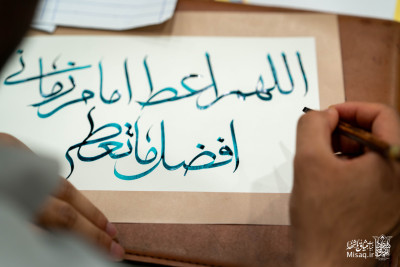 اللهم اعط امام زمانی
افضل ما تعطی
Misaq.ir